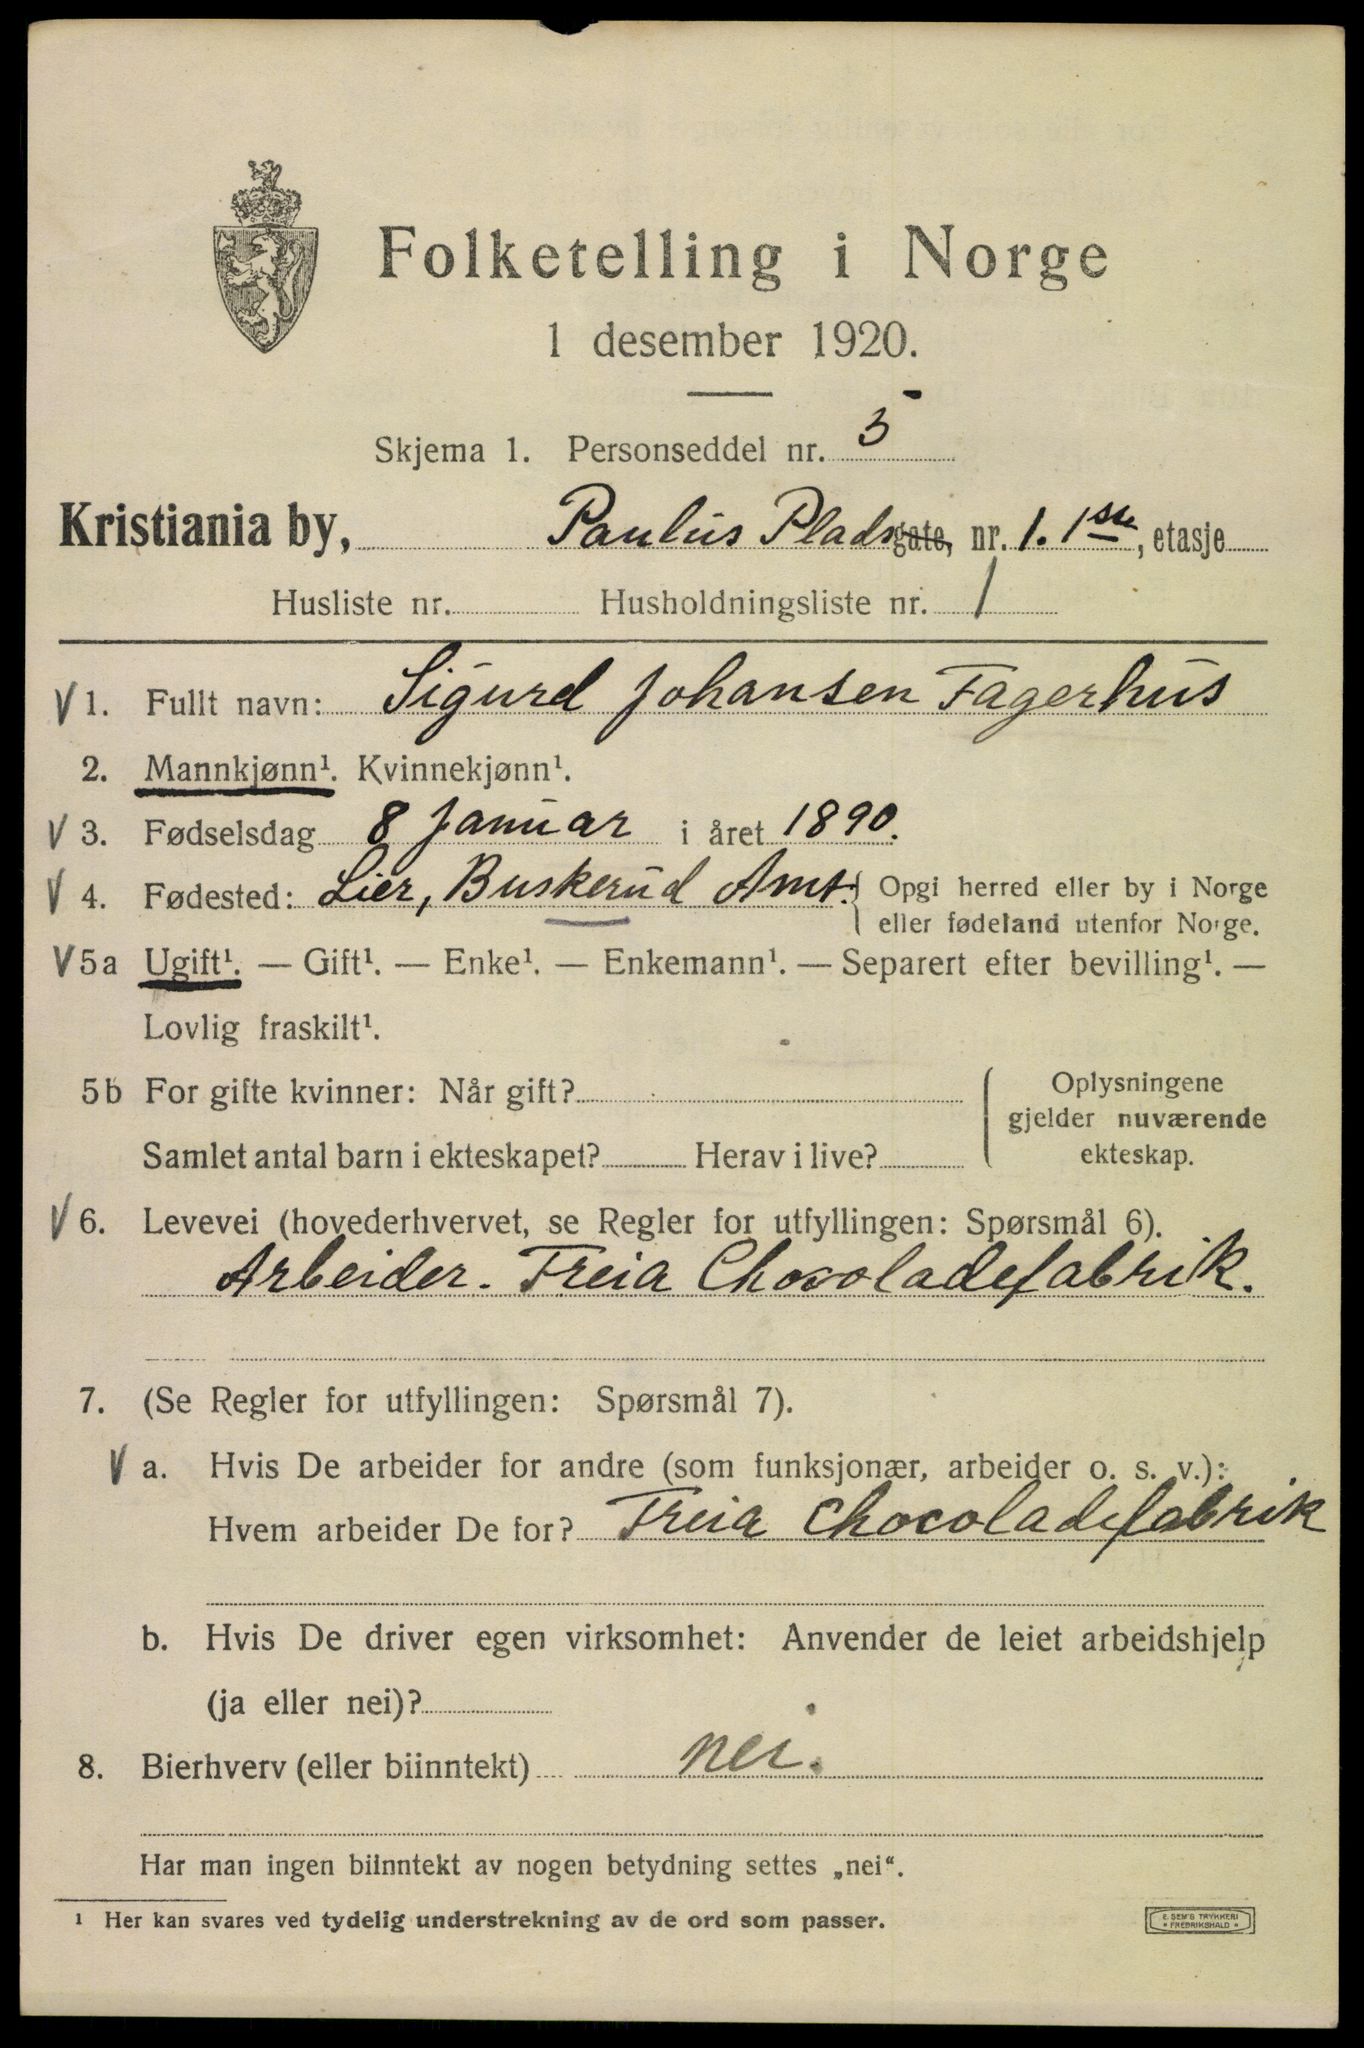 Folketelling i Norge
1 desember 1920.
Skjema 1. Personseddel nr. 5
Kristiania by, Paulus Pladsgate, nr. 1. 1ste, etasje
Husliste nr. Husholdningsliste nr. 1
V 1. Fullt navn: Sigurd Johansen Fagerhus
2. Mannkjønn¹. Kvinnekjønn¹.
V 3. Fødselsdag 8 Januar i året 1890.
V 4. Fødested: Lier, Buskerud Amt. Opgi herred eller by i Norge
eller fødeland utenfor Norge.
V 5a Ugift¹. — Gift¹. — Enke¹. — Enkemann¹. — Separert efter bevilling¹. —
Lovlig fraskilt¹.
5b For gifte kvinner: Når gift? Oplysningene
gjelder nuværende
Samlet antal barn i ekteskapet? Herav i live? ekteskap.
V 6. Levevei (hovederhvervet, se Regler for utfyllingen: Spørsmål 6).
Arbeider. Freia Chocoladefabrik.
7. (Se Regler for utfyllingen: Spørsmål 7).
V a. Hvis De arbeider for andre (som funksjonær, arbeider o. s. v.):
Hvem arbeider De for? Freia Chocoladefabrik
b. Hvis De driver egen virksomhet: Anvender de leiet arbeidshjelp
(ja eller nei)?
8. Bierhverv (eller biinntekt) nei.
Har man ingen biinntekt av nogen betydning settes „nei“.
¹ Her kan svares ved tydelig understrekning av de ord som passer.
E. SEM'S TRYKKERI
FREDRIKSHALD